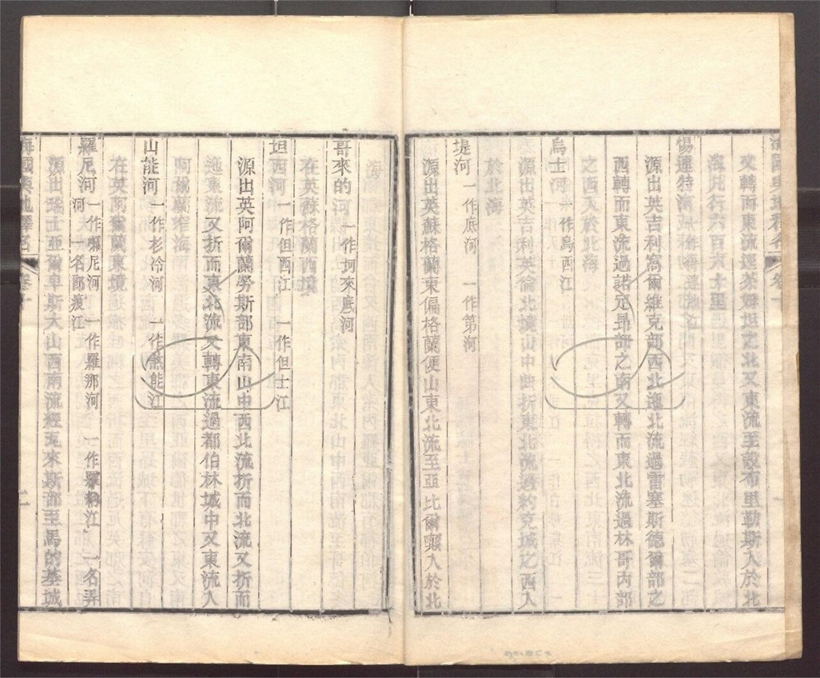 海國輿地釋名 卷十
又轉而東流逕茶姆坦之北又東流至設布里勒斯入於北
海北行六百六十里
惕連特河
源出英吉利窩爾維克部西北迤北流過雷塞斯德爾部之
西轉而東流過諾定昂部之南又轉而東北流過林哥內部
之西入於北海
烏士河 一作烏西江
源出英吉利英倫北境山中曲折東北流過約克城之西入
於北海
堤河 一作底河 一作第河
源出英蘇格蘭東偏格蘭便山東北流至亞比爾顚入於北
海
哥來的河 一作坷來底河
在英蘇格蘭西境
坦西河 一作但西江 一作但士江
源出英阿爾蘭勞斯部東南山中西北流折而北流又折而
迤東流又折而東北流又轉東流過都伯林城中又東流入
阿爾蘭窄海
山能河 一作杉冷河 一作煞能江
在英阿爾蘭東境
羅尼河 一作囉尼河 一作羅那河 一作羅鞥江 一名弄
河 一名部浪江
源出瑞士亞爾卑斯大山西南流經瓦來斯部至馬的基城
海國輿地釋名 卷十 二